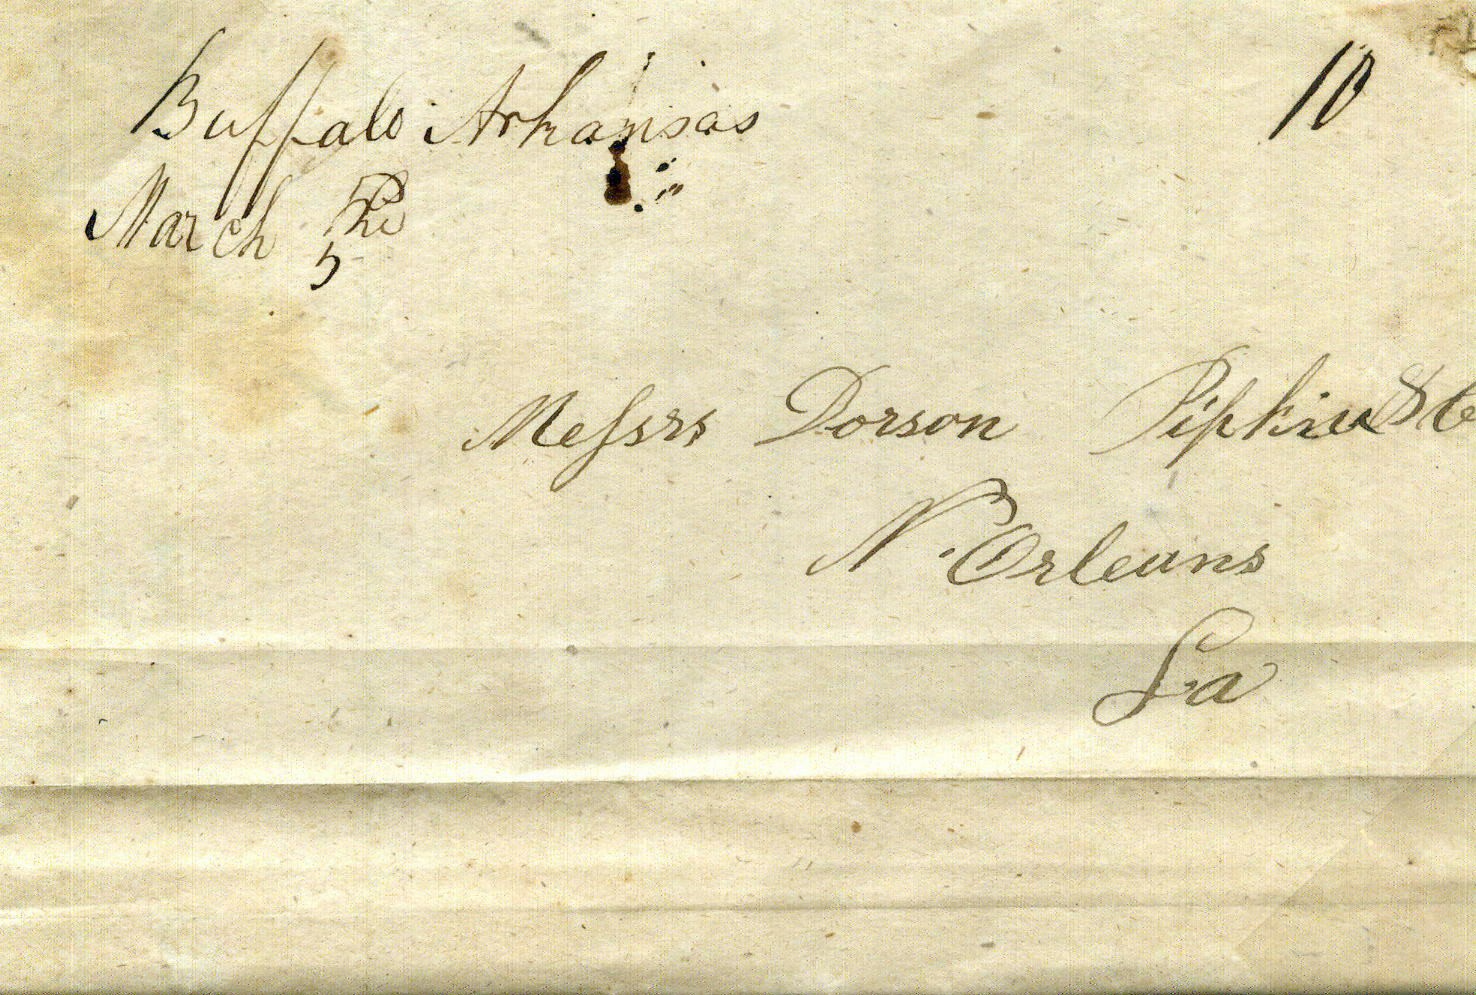 Buffalo Arkansas 10
March The
5
Messrs Dorson Pipkin & Co
N. Orleans
La